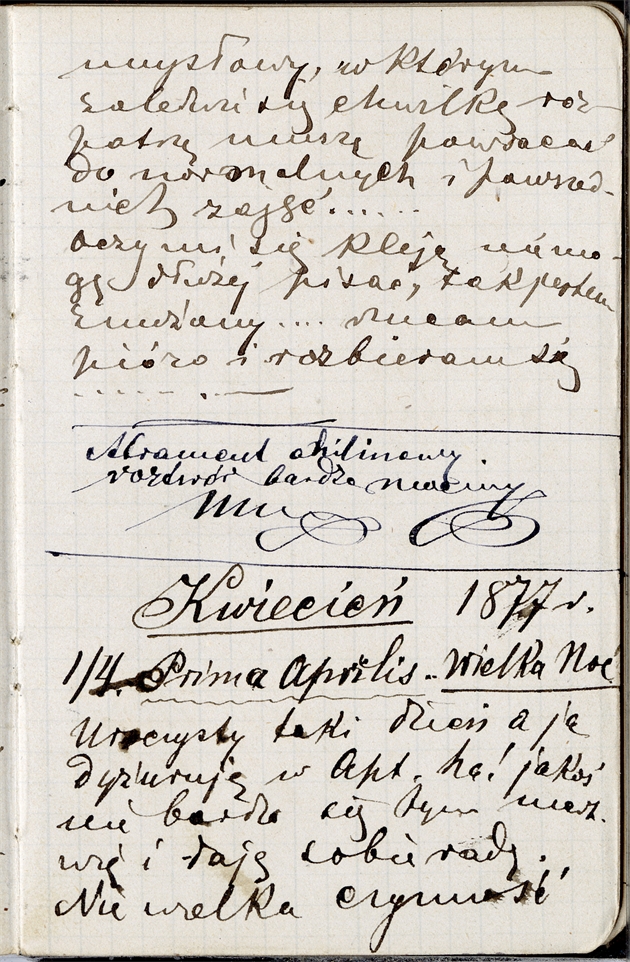 umysłowy, w którym
zaledwie się chwilkę roz-
patrzę muszę powracać
do normalnych i powszed-
nich zajęć......
oczy mi się kleją niemo-
gę dłużej pisać, tak jestem
znużony.... rzucam
pióro i rozbieram się
Atrament anilinowy
roztwór bardzo mocny
Kwiecień 1877 r.
1/4. Prima Aprilis.. Wielka Noc
Uroczysty taki dzień a ja
dyżuruję w Apt. ha! jakoś
nie bardzo się tym mart-
wię i daję sobie radę.
Nie wielka czynność